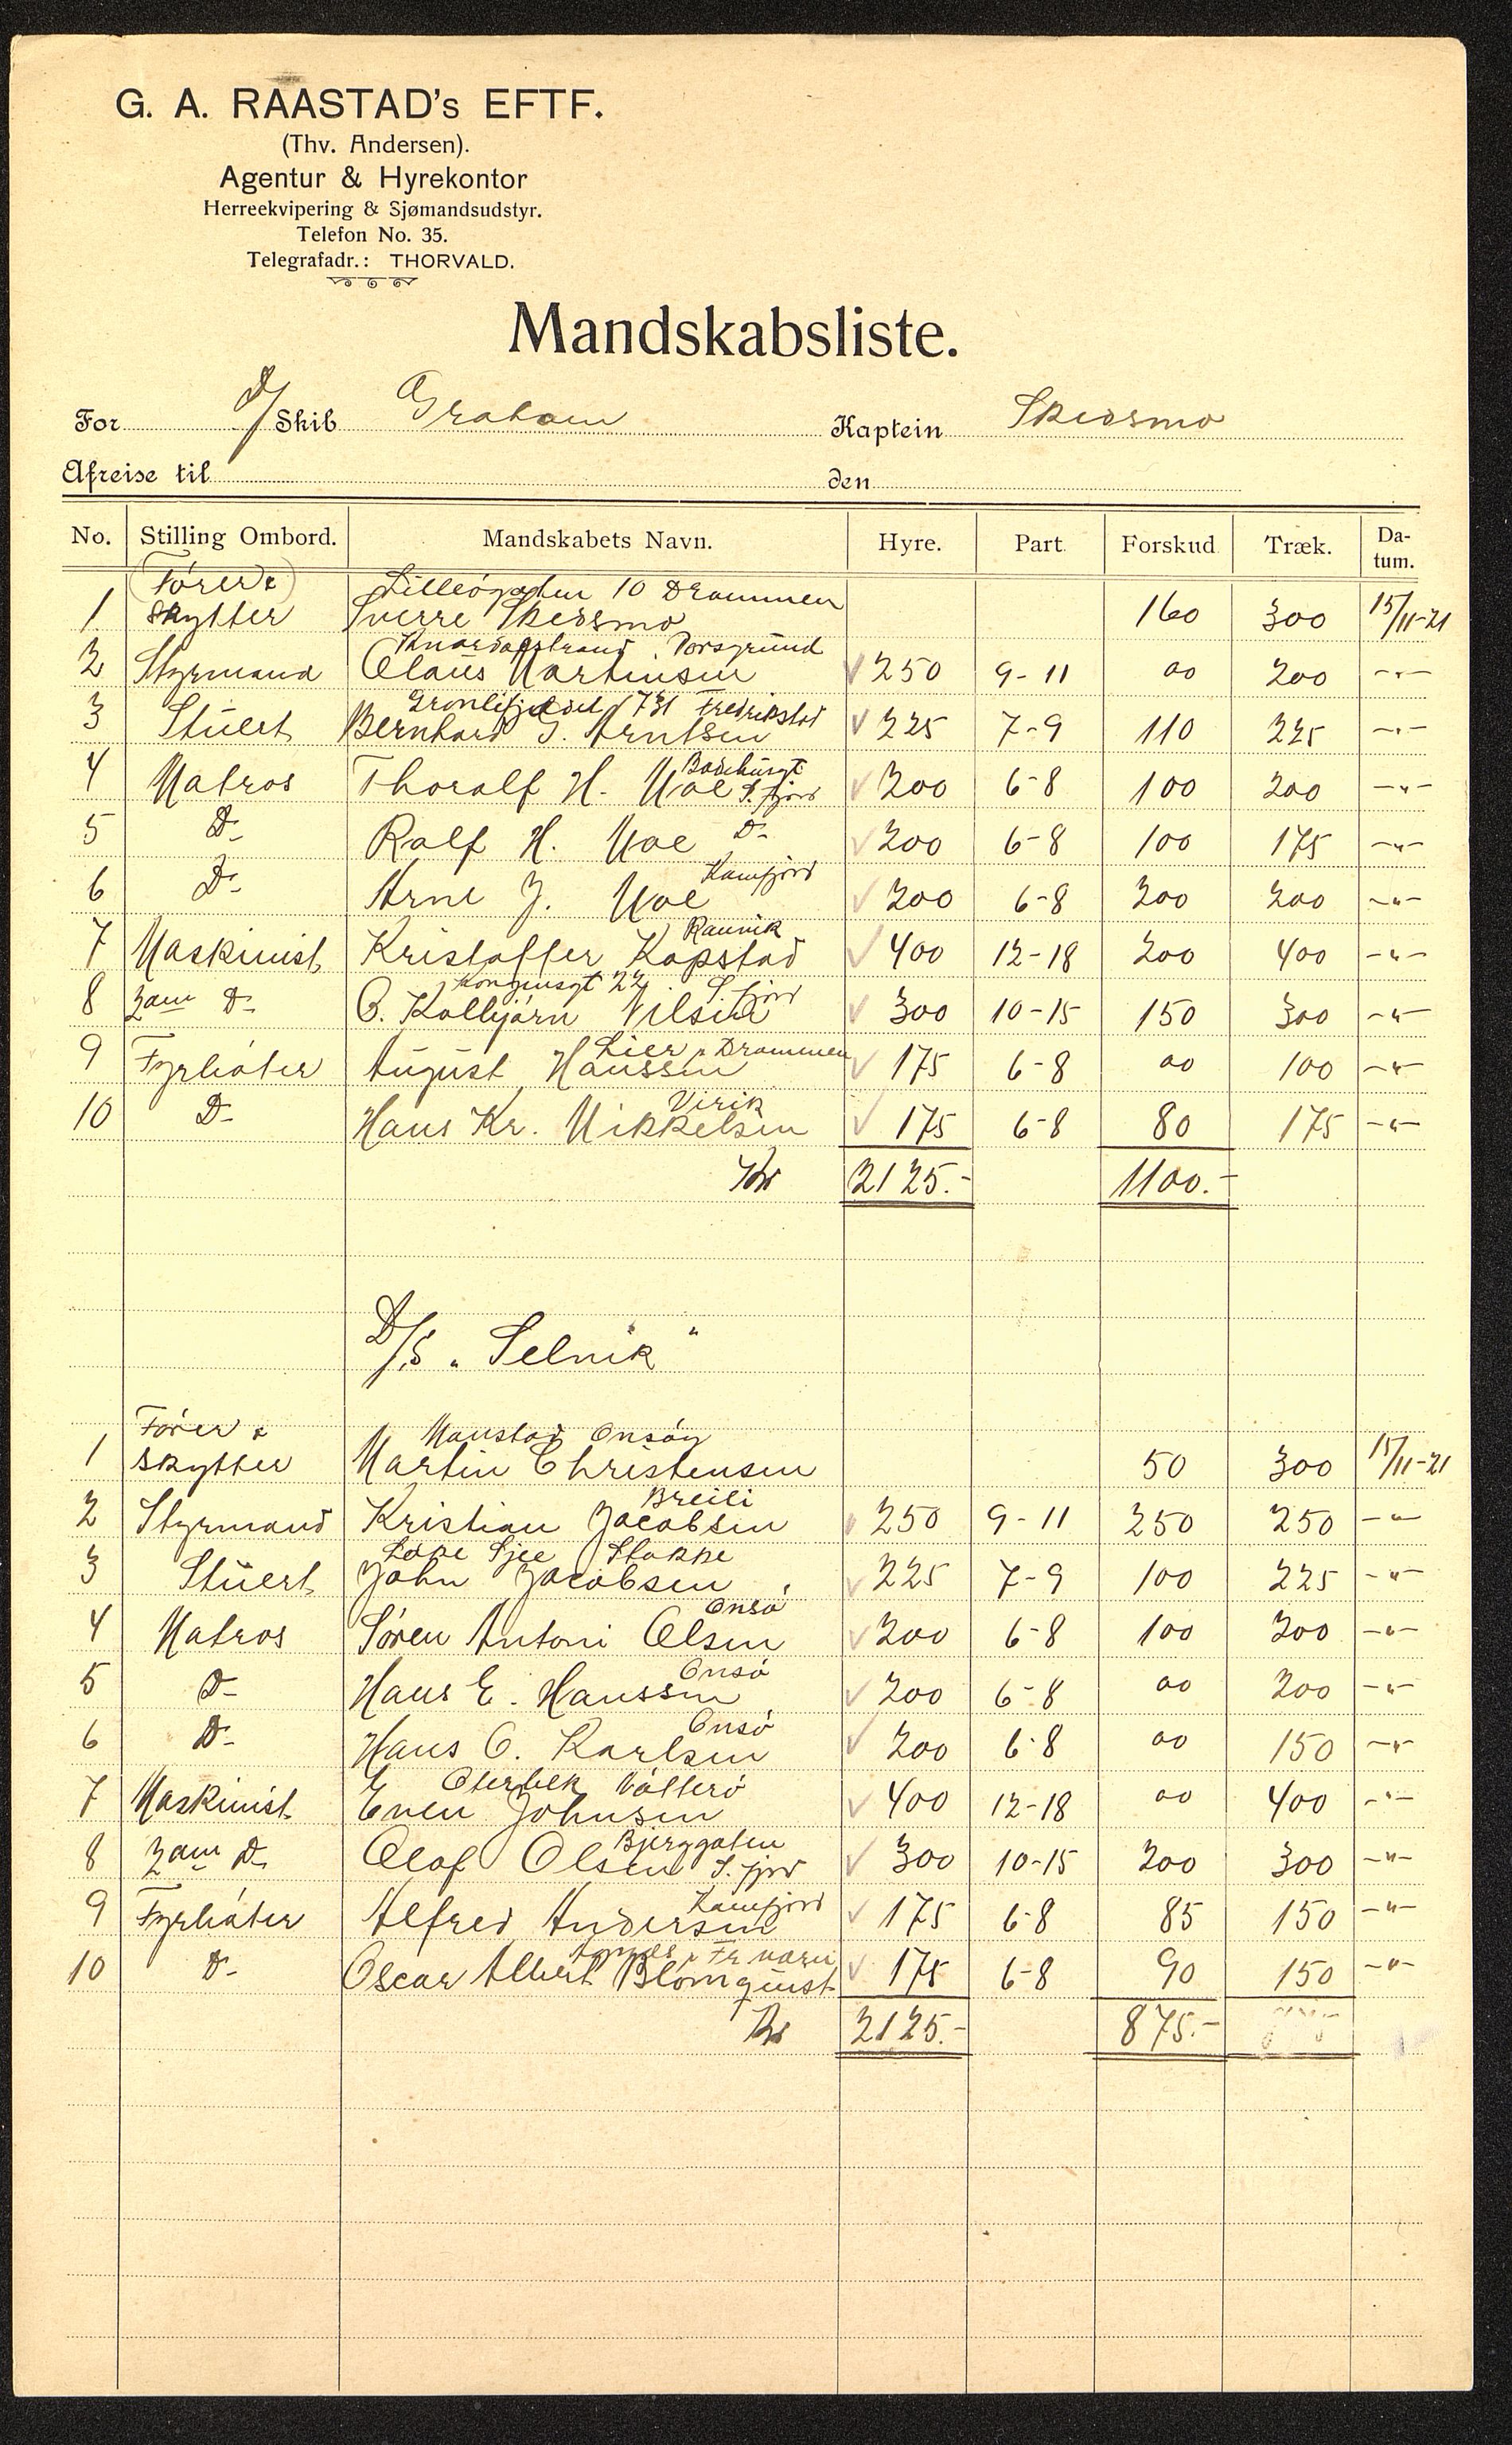 G. A. RAASTAD's EFTF.
(Thv. Andersen).
Agentur & Hyrekontor
Herreekvipering & Sjømandsudstyr.
Telefon No. 35.
Telegrafadr.: THORVALD.
Mandskabsliste.
For D/Skib Graham Kaptein Skedsmo
Afreise til den
No. Stilling Ombord. Mandskabets Navn. Hyre. Part. Forskud Træk. Datum.
Fører & Lilleøgaten 10 Drammen
1 Skytter Sverre Skedsmo 160 300 15/11-21
Knardalstrand Porsgrund
2 Styrmand Olaus Martinsen 250 9-11 00 200 -"-
Grønlifjeldet 731 Fredrikstad
3 Stuert Bernhard G. Arntsen 225 7-9 110 225 -"-
4 Matros Thoralf H. Moe S.fjord 200 6-8 100 200 -"-
5 Do Ralf H. Moe Do 200 6-8 100 175 -"-
Kamfjord
6 Do Arne J. Moe 200 6-8 200 200 -"-
Ranvik
7 Maskinist Kristoffer Kopstad 400 12-18 200 400 -"-
Kongensgt 22 S.fjord
8 2den Do O. Kolbjørn Nilsen 300 10-15 150 300 -"-
Lier pr Drammen
9 Fyrbøter August Hanssen 175 6-8 00 100 -"-
Virik
10 Do Hans Kr. Mikkelsen 175 6-8 80 175 -"-
Kr 2125.- 1100.-
D/S "Selvik"
Fører & Onsøy
1 Skytter Martin Christensen 50 300 15/11-21
Breili
2 Styrmand Kristian Jacobsen 250 9-11 250 250 -"-
Stokke
3 Stuert John Jacobsen 225 7-9 100 225 -"-
Onsø
4 Matros Søren Antoni Olsen 200 6-8 100 200 -"-
Onsø
5 Do Hans E. Hanssen 200 6-8 00 200 -"-
Onsø
6 Do Hans O. Karlsen 200 6-8 00 150 -"-
Oterbek Nøtterø
7 Maskinist Even Johnsen 400 12-18 00 400 -"-
Bjerggaten
8 2den Do Olaf Olsen S.fjord 300 10-15 200 300 -"-
Kamfjord
9 Fyrbøter Alfred Andersen 175 6-8 85 150 -"-
Fr værn
10 Do Oscar Albert Blomquist 175 6-8 90 150 -"-
Kr 2125.- 875.-